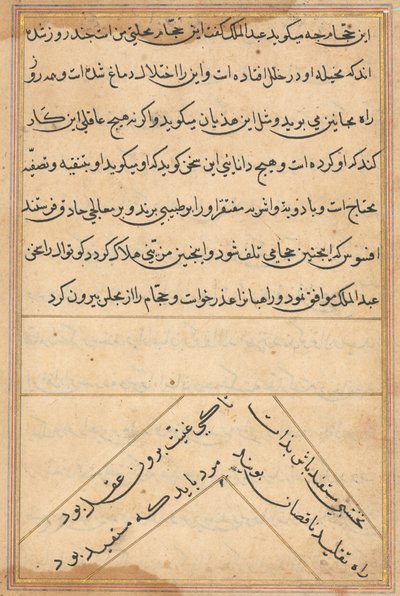 این حجام چه میکوید عبدالملک کفت این حجام محلتی من است چند روز شده
اند که مخیله او در خلل افتاده است و این را اختلال دماغ شده است و همه روز
راه مجانین می بوید و مثل این هذیان میکوید و اکر نه هیچ عاقلی این کار
کند که او کرده است و هیچ دانایی این سخن کوید که او میکوید او بتنقیه و تصفیه
محتاج است و بادویة و اشربه مفتقر او را بر طبیبی برند و بر معالجی حاذق فرستند
افسوس که اینچنین حجامی تلف شود و اینچنین مزینی هلاک کردد کوتوال را سخن
عبدالملک موافق نمود و رهبانرا عذر خواست و حجام را از مجلس بیرون کرد
نخشبی مستفید باش بذات
برون عقل بود
راه تقلید ناقصان بویند
مرد باید که مستفید بود